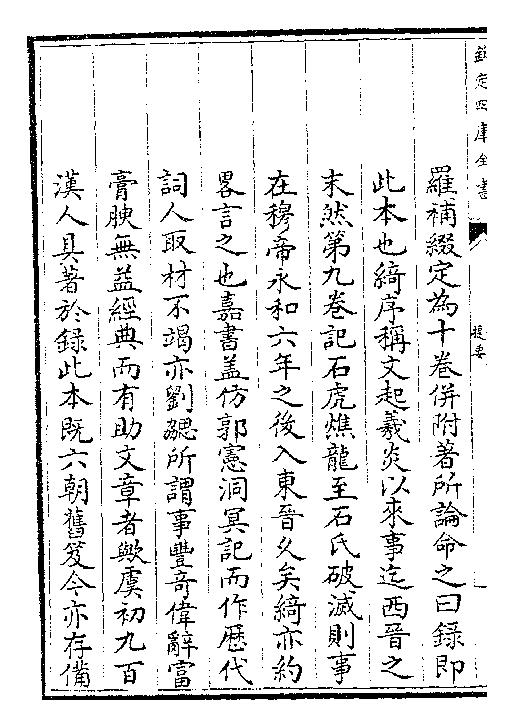 欽定四庫全書
提要
羅補綴定為十卷併附著所論命之曰錄即
此本也綺序稱文起羲炎以來事迄西晉之
末然第九卷記石虎燋龍至石氏破滅則事
在穆帝永和六年之後入東晉久矣綺亦約
畧言之也嘉書盖仿郭憲洞冥記而作歴代
詞人取材不竭亦劉勰所謂事豐奇偉辭富
膏腴無益經典而有助文章者歟虞初九百
漢人具著於錄此本既六朝舊笈今亦存備